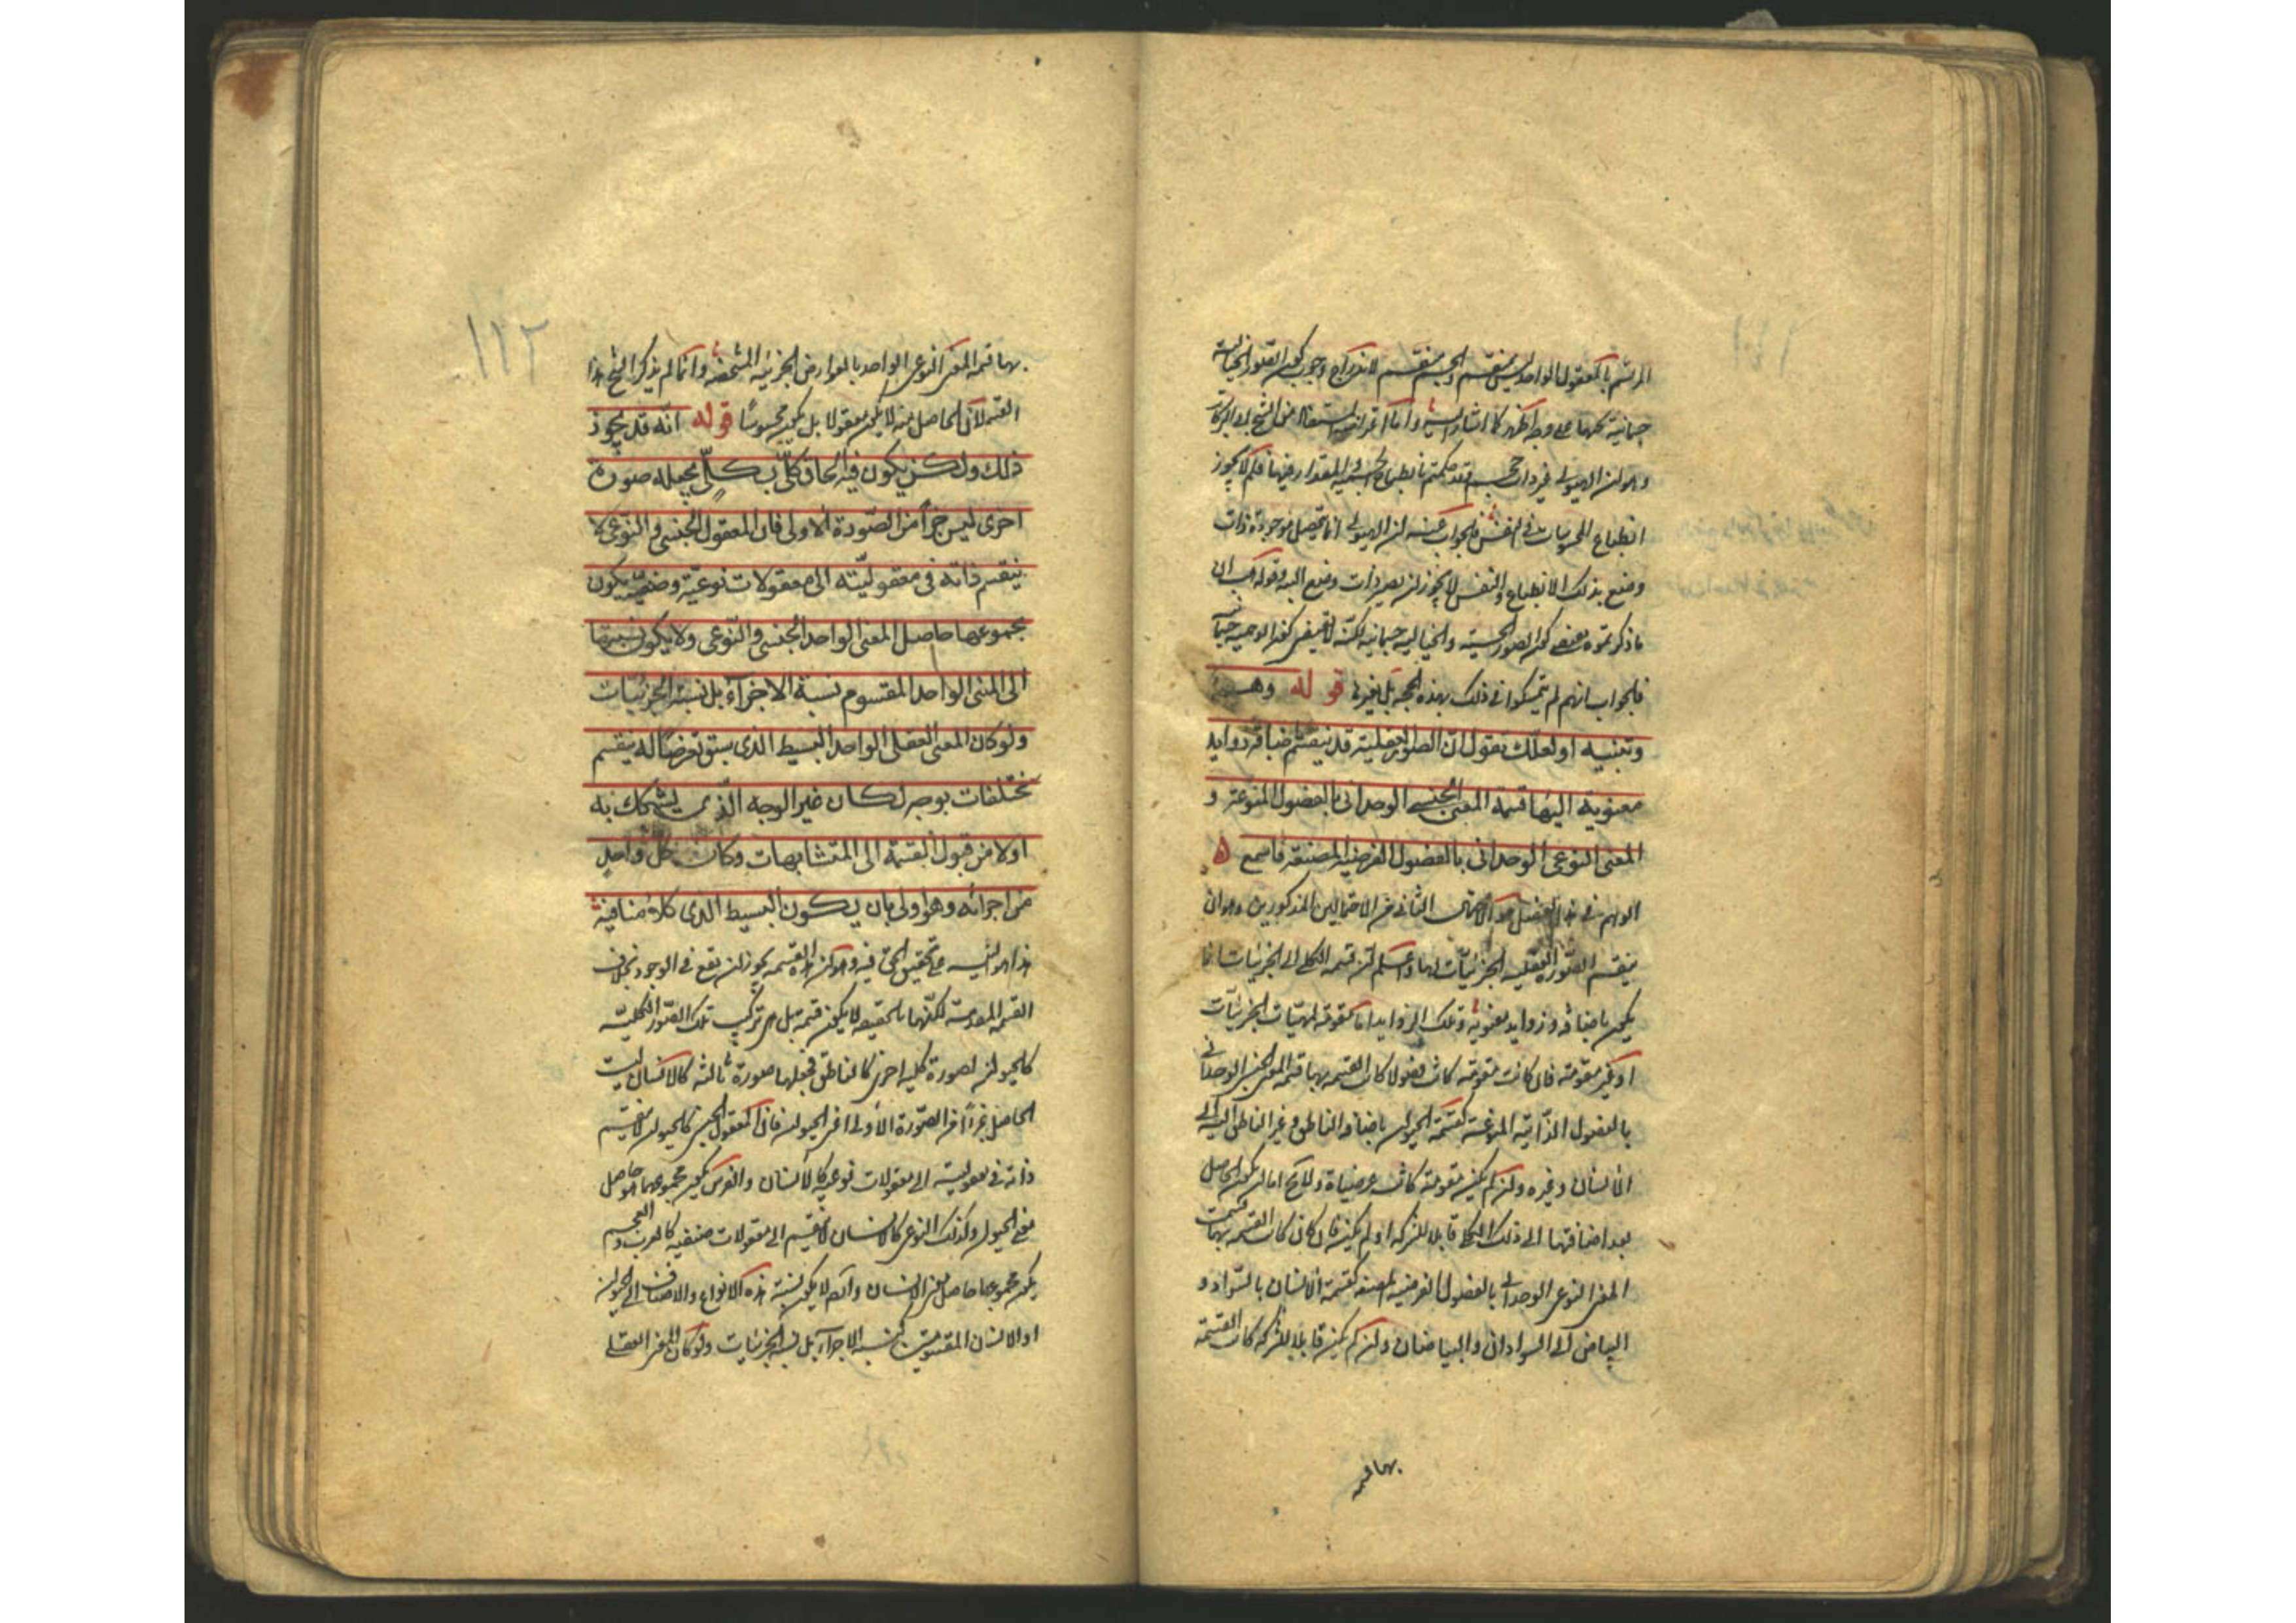 المرتسم بالمعقول الواحد ليس بمنقسم والجسم منقسم
جسمانية كلها على وجه اظهر كما اشار اليه واما
وهو ان الهيولى غير ذات حجم فقد حكمتم بانطباع الجسمية المقدار فيها فلم لا يجوز
انطباع المحسوسات في النفس فالجواب عنه ان الهيولى انما تحصل موجودة ذات
وضع بذلك الانطباع والنفس لا يجوز ان يصير ذات وضع البتة
ما ذكرتموه يقتضي كون الصور الحسية والخيالية جسمانية لكنه لا يقتضي كون الوهمية
فالجواب انهم لم يتمسكوا في ذلك بهذه الحجة بل بغيرها قوله وهم
وتنبيه او لعلك تقول ان الصورة العقلية قد ينقسم باضافة زوايد
معنوية اليها قسمة المعنى الجنسي الوحداني بالفصول المنوعة و
المعنى النوعي الوحداني بالفصول العرضية المصنفة فاسمع
الوهم في هذا الفصل هو الاحتمال الثاني من الاحتمالين المذكورين وهو ان
ينقسم الصورة العقلية الى جزئيات لها واعلم ان قسمة الكلي الى الجزئيات انما
يكون باضافة زوايد معنوية وتلك الزوايد اما مقومة لمهيات الجزئيات
او غير مقومة فان كانت مقومة كانت فصولا كانت القسمة بها قسمة المعنى الجنسي الوحداني
بالفصول الذاتية المنوعة كقسمة الحيوان باضافة الناطق وغير الناطق اليه الى
الانسان وغيره وان لم يكن مقومة كانت عرضيات ولا يخ اما ان يكون الحاصل
بعد اضافتها الى ذلك الكلي قابلا للشركة او لم يكن فان كان كانت القسمة بها قسمة
المعنى النوعي الوحداني بالفصول العرضية المصنفة كقسمة الانسان بالسواد و
البياض الى السودان والبيضان وان لم يكن قابلا للشركة كانت القسمة
بها قسمة
١١٢
بها قسمة المعنى النوعي الواحد بالعوارض الجزئية المشخصة وانما لم يذكر الشيخ هذا
القسم لان الحاصل منه لا يكون معقولا بل يكون محسوسا قوله انه قد يجوز
ذلك ولكن يكون فيه الحاق كلي بكلي يجعله صورة
اخرى ليس جزأ من الصورة الاولى فان المعقول الجنسي والنوعي لا
ينقسم ذاته في معقوليته الى معقولات نوعية وصنفية يكون
مجموعها حاصل المعنى الواحد الجنسي والنوعي ولا يكون نسبتها
الى المعنى الواحد المقسوم نسبة الاجزآء بل نسبة الجزئيات
ولو كان المعنى العقلي الواحد البسيط الذي سبق تعرضنا له ينقسم
بمختلفات بوجه لكان غير الوجه الذي يشكك به
اولا من قبول القسمة الى المتشابهات وكان كل واحد
من اجزائه وهو اولى بان يكون البسيط الذي كلامنا فيه
هذا هو التنبيه على تحقيق الحق فيه وهو ان هذه القسمة يجوز ان يقع في الوجود بخلاف
القسمة المقدمة لكنها بالحقيقة لا يكون قسمة بل هي تركيب تلك الصورة الكلية
كالحيوان بصورة كلية اخرى كالناطق فجعلها صورة ثالثة كالانسان ليست
الحاصل جزأ من الصورة الاولى اعني الحيوان فان المعقول الجنسي كالحيوان لا ينقسم
ذاته في معقوليته الى معقولات نوعية كالانسان والفرس يكون مجموعها هو حاصل
معنى الحيوان وكذلك النوعي كالانسان لا ينقسم الى معقولات صنفية كالعرب والعجم
يكون مجموعها حاصل معنى الانسان وايضا لا يكون نسبة هذه الانواع والاصناف الى الحيوان
او الانسان المقسومين نسبة الاجزآء بل نسبة الجزئيات ولو كان المعنى العقلي